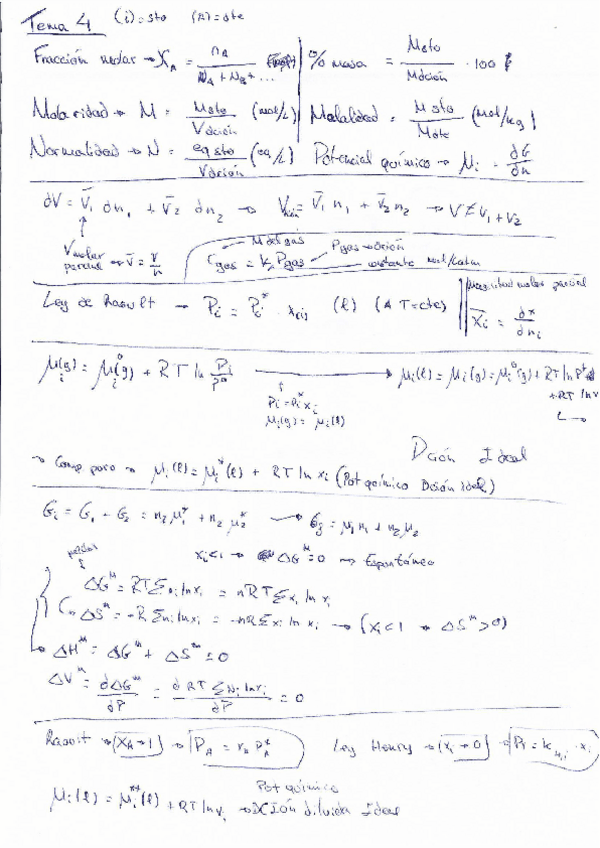 Tema 4 (i)=sto (A)=dte
Fracción molar → X_A = n_A / (n_A + n_B + ...) % masa = Msto / Mdción · 100
Molaridad → M = Msto / Vdción (mol/L) Molalidad = Msto / Mdte (mol/kg)
Normalidad → N = eq sto / Vdción (eq/L) Potencial químico → μi = ∂G/∂n
∂V = V̄1 ∂n1 + V̄2 ∂n2 → = V̄1 n1 + V̄2 n2 → V ≠ V1 + V2
Vmolar parcial → V̄ = V/n
Cgas = k Pgas constante
Ley de Raoult → Pi = Pi* · x (l) (A T=cte) magnitud molar parcial X̄i = ∂x/∂ni
μi(g) = μi°(g) + RT ln Pi/P° → μi(l) = μi(g) = μi°(g) + RT ln
+ RT ln
Pi = Pi* xi
μi(g) = μi(l)
Dción Ideal
→ Comp puro → μi(l) = μi*(l) + RT ln xi (Pot químico Dción Ideal)
Gi = G1 + G2 = n2 μ1* + n2 μ2* → = μ1 n1 + n2 μ2
xi<1 → ΔG^M=0 → Espontáneo
ΔG^M = RT Σ ni ln xi = nRT Σ xi ln xi
ΔS^M = -R Σ ni ln xi = -nR Σ xi ln xi → (xi<1 → ΔS^M>0)
ΔH^M = ΔG^M + ΔS^M = 0
ΔV^M = ∂ΔG^M/∂P = ∂ RT Σ ni ln xi / ∂P = 0
Raoult → (XA→1) → PA = xA PA* Ley Henry → (xi→0) → Pi = k_H,i · xi
Pot químico
μi(l) = (l) + RT ln → Dción diluida Ideal